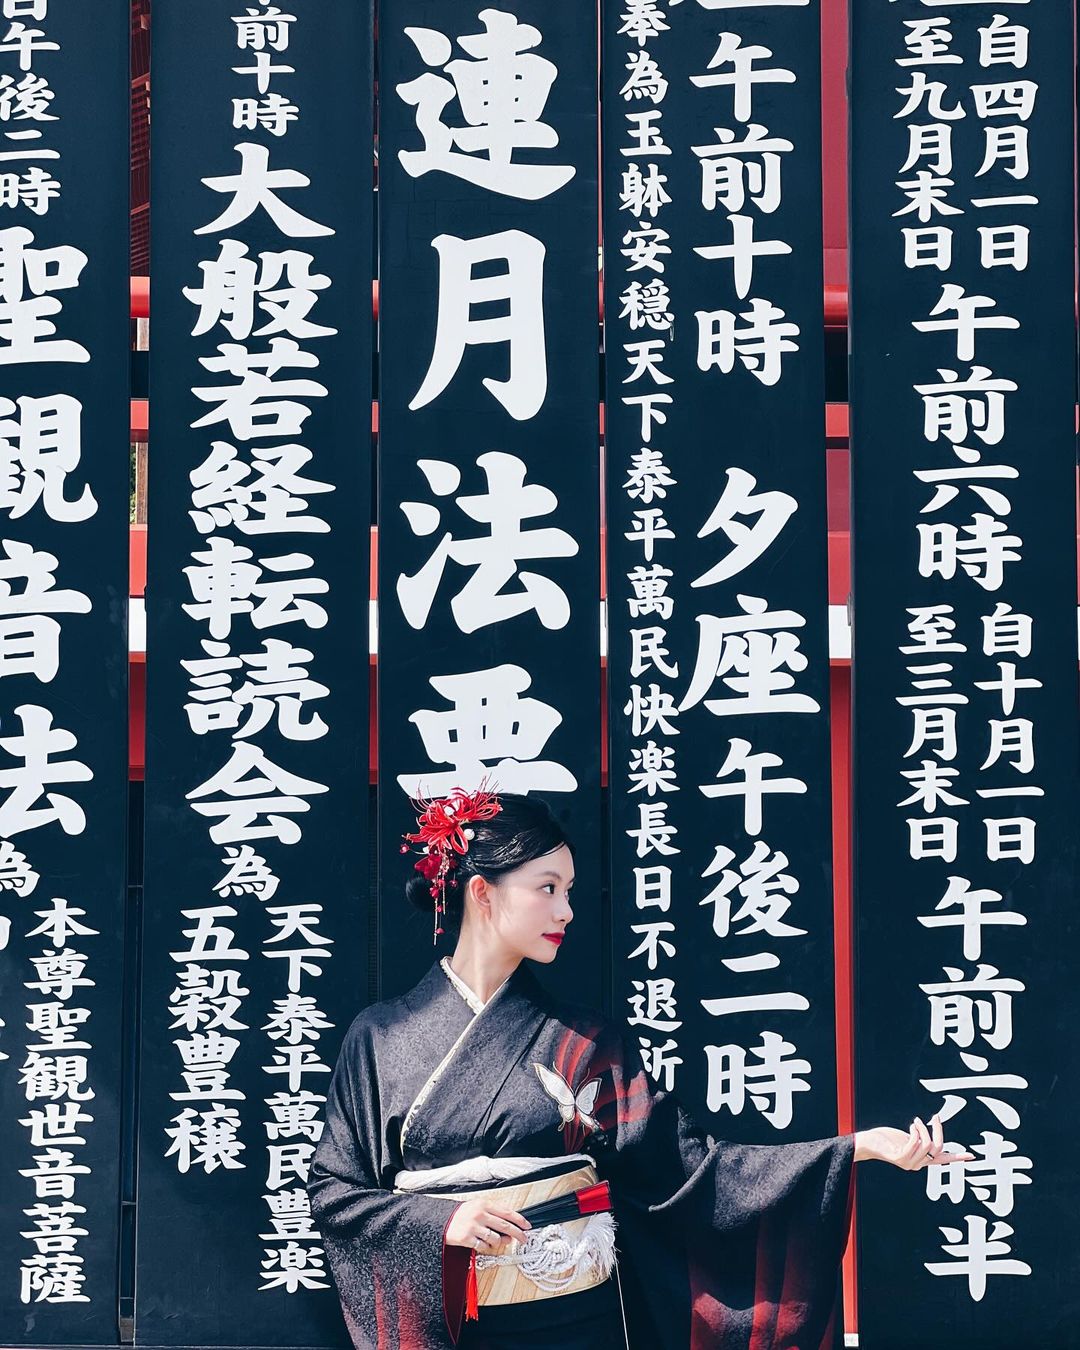 自四月一日
至九月末日
午前六時
自十月一日
至三月末日
午前六時半
午前十時 夕座 午後二時
奉為玉躰安穏天下泰平萬民快楽長日不退祈
連月法要
前十時
大般若経転読会
為
天下泰平萬民豊楽
五穀豊穣
午後二時
聖観音法
為
本尊聖観世音菩薩